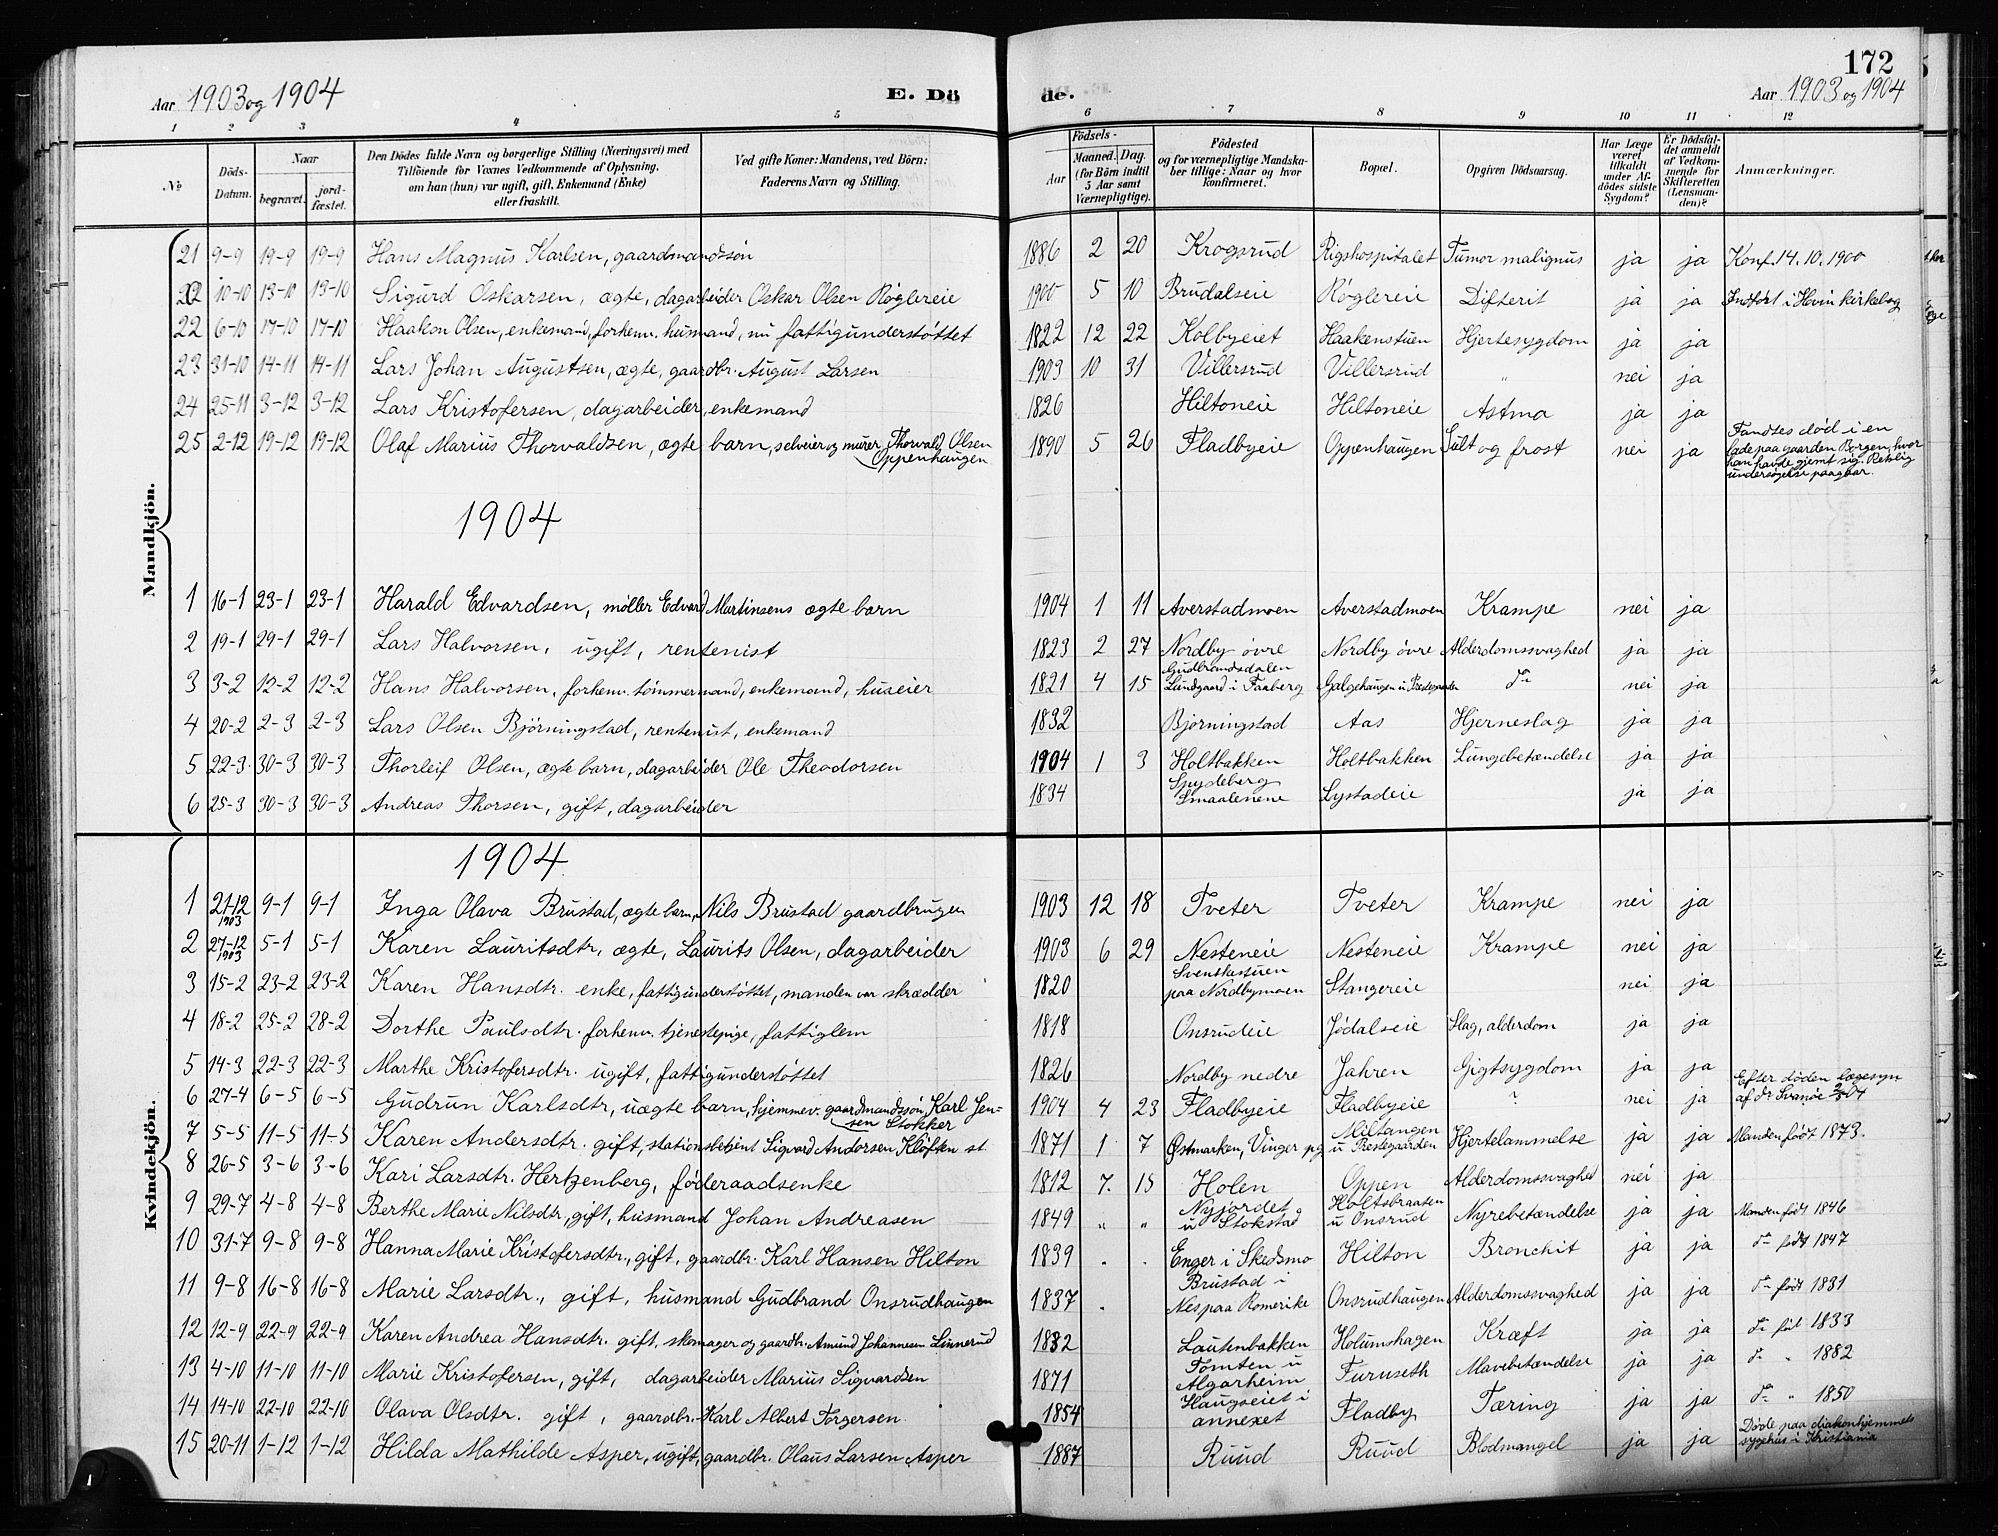 172
Aar 1903 og 1904 E. Dö de. Aar 1903 og 1904
1 2 3 4 5 6 7 8 9 10 11 12
№ Döds-Datum. Naar begravet. jord-fæstet. Den Dödes fulde Navn og borgerlige Stilling (Næringsvei) med Tilföiende for Voxnes Vedkommende af Oplysning, om han (hun) var ugift, gift, Enkemand (Enke) eller fraskilt. Ved gifte Koner: Mandens, ved Börn: Faderens Navn og Stilling. Födsels- Aar Maaned. Dag. (for Börn indtil 5 Aar samt Værnepligtige). Födested og for værnepligtige Mandskaber tillige: Naar og hvor konfirmeret. Bopæl. Opgiven Dödsaarsag. Har Læge været tilkaldt under Afdödes sidste Sygdom? Er Dödsfaldet anmeldt af Vedkommende for Skifteretten (Lensmanden)? Anmærkninger.
Mandkjön.
21 9-9 19-9 19-9 Hans Magnus Karlsen, gaardmandssøn 1886 2 20 Krogsrud Rigshospitalet Tumor malignus ja ja Konf. 14.10.1900
22 10-10 13-10 13-10 Sigurd Oskarsen, ægte, dagarbeider Oskar Olsen Røglereie 1900 5 10 Brudalseie Røglereie Difterit ja ja Indført i Hovin kirkebog
22 6-10 17-10 17-10 Haakon Olsen, enkemand, forhenv. husmand, nu fattigunderstøttet 1822 12 22 Kolbyeiet Haakenstuen Hjertesygdom ja ja
23 31-10 14-11 14-11 Lars Johan Augustsen, ægte, gaardbr. August Larsen 1903 10 31 Villersrud Villersrud " nei ja
24 25-11 3-12 3-12 Lars Kristofersen, dagarbeider, enkemand 1826 Hiltoneie Hiltoneie Astma ja ja
25 2-12 19-12 19-12 Olaf Marius Thorvaldsen, ægte barn, selveier og murer Thorvald Olsen Oppenhaugen 1890 5 26 Fladbyeie Oppenhaugen Sult og frost nei ja Fandtes død i en lade paa gaarden Borgen, hvor han havde gjemt sig. Retslig undersøgelse paagaar.
1904
1 16-1 23-1 23-1 Harald Edvardsen, møller Edvard Martinsens ægte barn 1904 1 11 Averstadmoen Averstadmoen Krampe nei ja
2 19-1 29-1 29-1 Lars Halvorsen, ugift, rentenist 1823 2 27 Nordby øvre Nordby øvre Alderdomssvaghed ja ja
3 3-2 12-2 12-2 Hans Halvorsen, forhenv. tømmermand, enkemand, huseier 1821 4 15 Gudbrandsdalen Lundgaard i Faaberg Galgehaugen u. Præstegaarden do nei ja
4 20-2 2-3 2-3 Lars Olsen Bjørningstad, rentenist, enkemand 1832 Bjørningstad Aas Hjerneslag ja ja
5 22-3 30-3 30-3 Thorleif Olsen, ægte barn, dagarbeider Ole Theodorsen 1904 1 3 Holtbakken Holtbakken Lungebetændelse ja ja
6 25-3 30-3 30-3 Andreas Thorsen, gift, dagarbeider 1834 Spydeberg Smaalenene Lystadeie ja ja
Kvindekjön.
1904
1 21-12 1903 9-1 9-1 Inga Olava Brustad, ægte barn, Nils Brustad gaardbrugen 1903 12 18 Tveter Tveter Krampe nei ja
2 27-12 1903 5-1 5-1 Karen Lauritsdtr, ægte, Laurits Olsen, dagarbeider 1903 6 29 Nesteneie Nesteneie Krampe nei ja
3 15-2 23-2 23-2 Karen Hansdtr. enke, fattigunderstøttet, manden var skrædder 1820 Svenskestuen paa Nordbymoen Stangereie nei ja
4 18-2 25-2 28-2 Dorthe Paulsdtr. forhenv. tjenestepige, fattiglem 1818 Onsrudeie Jødalseie Slag, alderdom ja ja
5 14-3 22-3 22-3 Marthe Kristofersdtr. ugift, fattigunderstøttet 1826 Nordby nedre Jahren Gigtsygdom ja ja
6 27-4 6-5 6-5 Gudrun Karlsdtr, uægte barn, hjemmev. gaardmandssøn Karl Jensen Stokker 1904 4 23 Fladbyeie Fladbyeie ? nei ja Efter døden lægesyn af dr Svanøe 2/5 04
7 5-5 11-5 11-5 Karen Andersdtr. gift, stationsbetjent Sigvard Andersen Kløften st. 1871 1 7 Østmarken, Vinger pg Miltangen u Præstegaarden Hjertelammelse ja ja Manden født 1873.
8 26-5 3-6 3-6 Kari Larsdtr. Hertzenberg, føderaadsenke 1812 7. 15 Holen Oppen Alderdomssvaghed nei ja
9 29-7 4-8 4-8 Berthe Marie Nilsdtr, gift, husmand Johan Andreasen 1849 " " Nyjordet u Stokstad Holtsbraaten u Onsrud Nyrebetændelse ja ja Manden født 1846
10 31-7 9-8 9-8 Hanna Marie Kristofersdtr., gift, gaardbr. Karl Hansen Hilton 1839 . . Enger i Skedsmo Hilton Bronchit ja ja do født 1847
11 9-8 16-8 16-8 Marie Larsdtr., gift, husmand Gudbrand Onsrudhaugen 1837 . Brustad i Nes paa Romerike Onsrudhaugen Alderdomssvaghed ja ja do født 1831
12 12-9 22-9 22-9 Karen Andrea Hansdtr. gift, skomager og gaardbr. Amund Johannesen Linnerud 1832 Lautenbakken Holumshagen Kræft ja ja do føt 1833
13 4-10 11-10 11-10 Marie Kristofersen, gift, dagarbeider Marius Sigvardsen 1871 Tomten u Algarheim Furuseth Mavebetændelse ja ja do " 1882
14 14-10 22-10 22-10 Olava Olsdtr. gift, gaardbr. Karl Albert Torgersen 1854 Haugseiet i annexet Fladby Tæring ja ja do " 1850
15 20-11 1-12 1-12 Hilda Mathilde Asper, ugift, gaardbr. Olaus Larsen Asper 1887 Ruud Ruud Blodmangel ja ja Døde paa diakonhjemmets sygehus i Kristiania